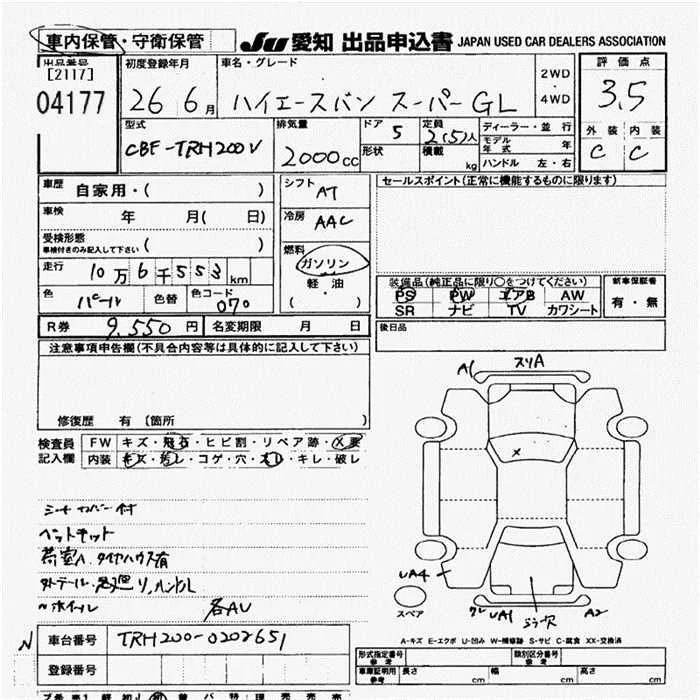 車内保管・守衛保管
JU 愛知 出品申込書 JAPAN USED CAR DEALERS ASSOCIATION
出品番号 [2117] 04177
初度登録年月 26 6月
車名・グレード ハイエースバン スーパーGL
2WD・4WD
評価点 3.5
外装 C 内装 C
型式 CBF-TRH200V
排気量 2000cc
ドア 5
形状
定員 2(5)人
積載 kg
ディーラー・並行
モデル年式 年
ハンドル 左・右
車歴 自家用・( )
車検 年 月( 日)
受検形態 ( )
車検付きのみ記入して下さい
走行 10万6千553km
色 パール 色替 色コード 070
シフト AT
冷房 AAC
燃料 ガソリン 軽油 ( ・ )
セールスポイント(正常に機能するものに限ります)
装備品(純正品に限り○をつけてください)
PS PW エアB AW
SR ナビ TV カワシート
新車保証書 有・無
R券 9,550円 名変期限 月 日
後日品
注意事項申告欄(不具合内容等は具体的に記入して下さい)
修復歴 有 〔箇所 〕
検査員記入欄
FW キズ・飛石・ヒビ割・リペア跡・X要
内装 キズ・汚レ・コゲ・穴・スレ・キレ・破レ
シートカバー付
ベットキット
荷室A タイヤハウス有
外テール・
〃ホイール 各AU
A1 スリA
x
UA4
スペア
UA1
A2
A-キズ E-エクボ U-凹み W-補修跡 S-サビ C-腐食 XX-交換済
車台番号 TRH200-0202651
登録番号
型式指定番号 参考 類別区分番号 参考
車庫証明用 参考 長さ cm 幅 cm 高さ cm